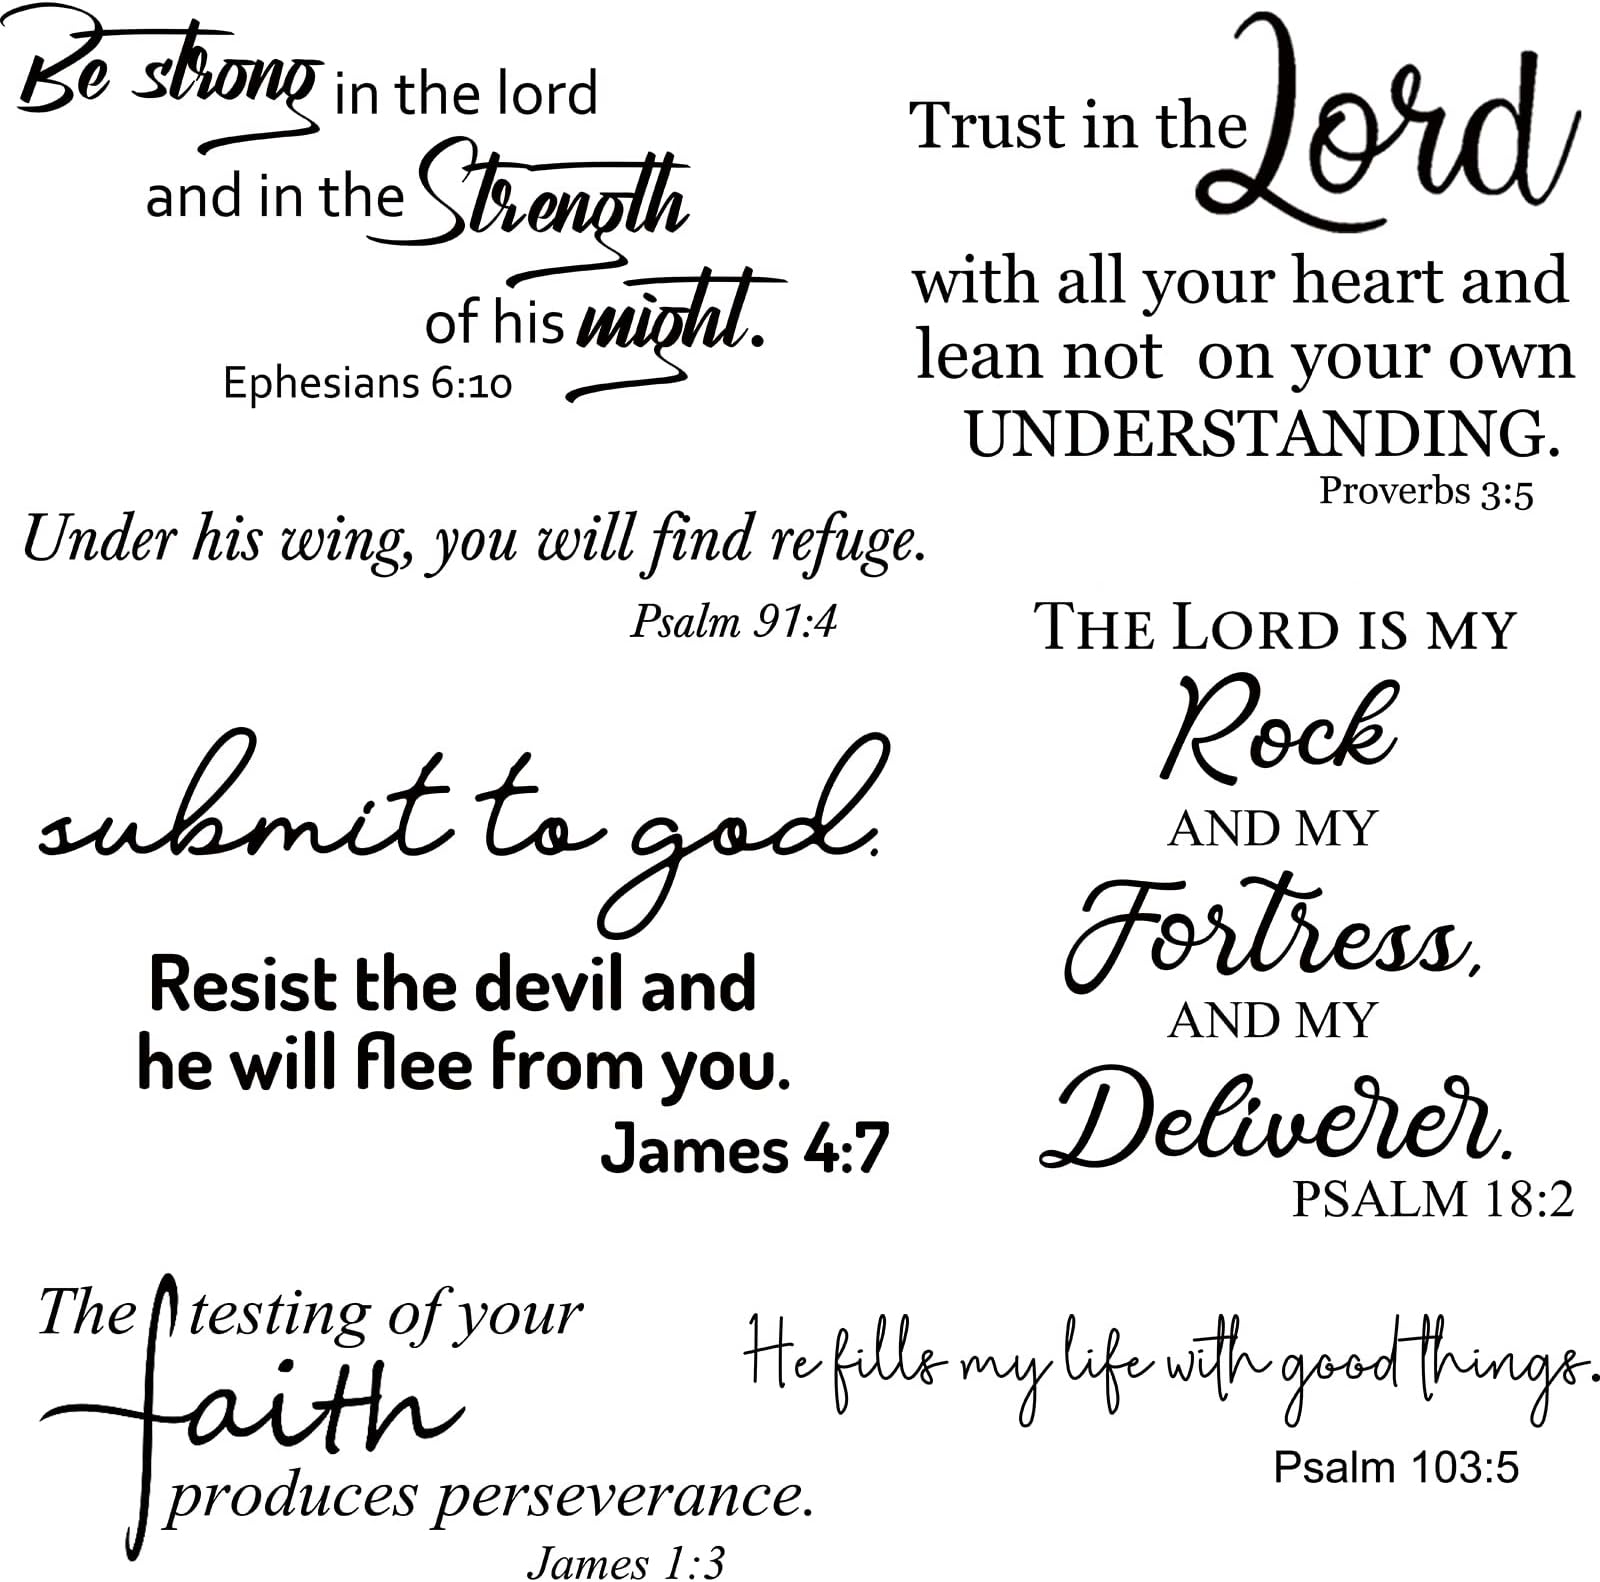 Be strong in the lord
and in the Strength
of his might.
Ephesians 6:10
Trust in the Lord
with all your heart and
lean not on your own
UNDERSTANDING.
Proverbs 3:5
Under his wing, you will find refuge.
Psalm 91:4
THE LORD IS MY
Rock
AND MY
Fortress,
AND MY
Deliverer.
PSALM 18:2
submit to god.
Resist the devil and
he will flee from you.
James 4:7
The testing of your
faith
produces perseverance.
James 1:3
He fills my life with good things.
Psalm 103:5